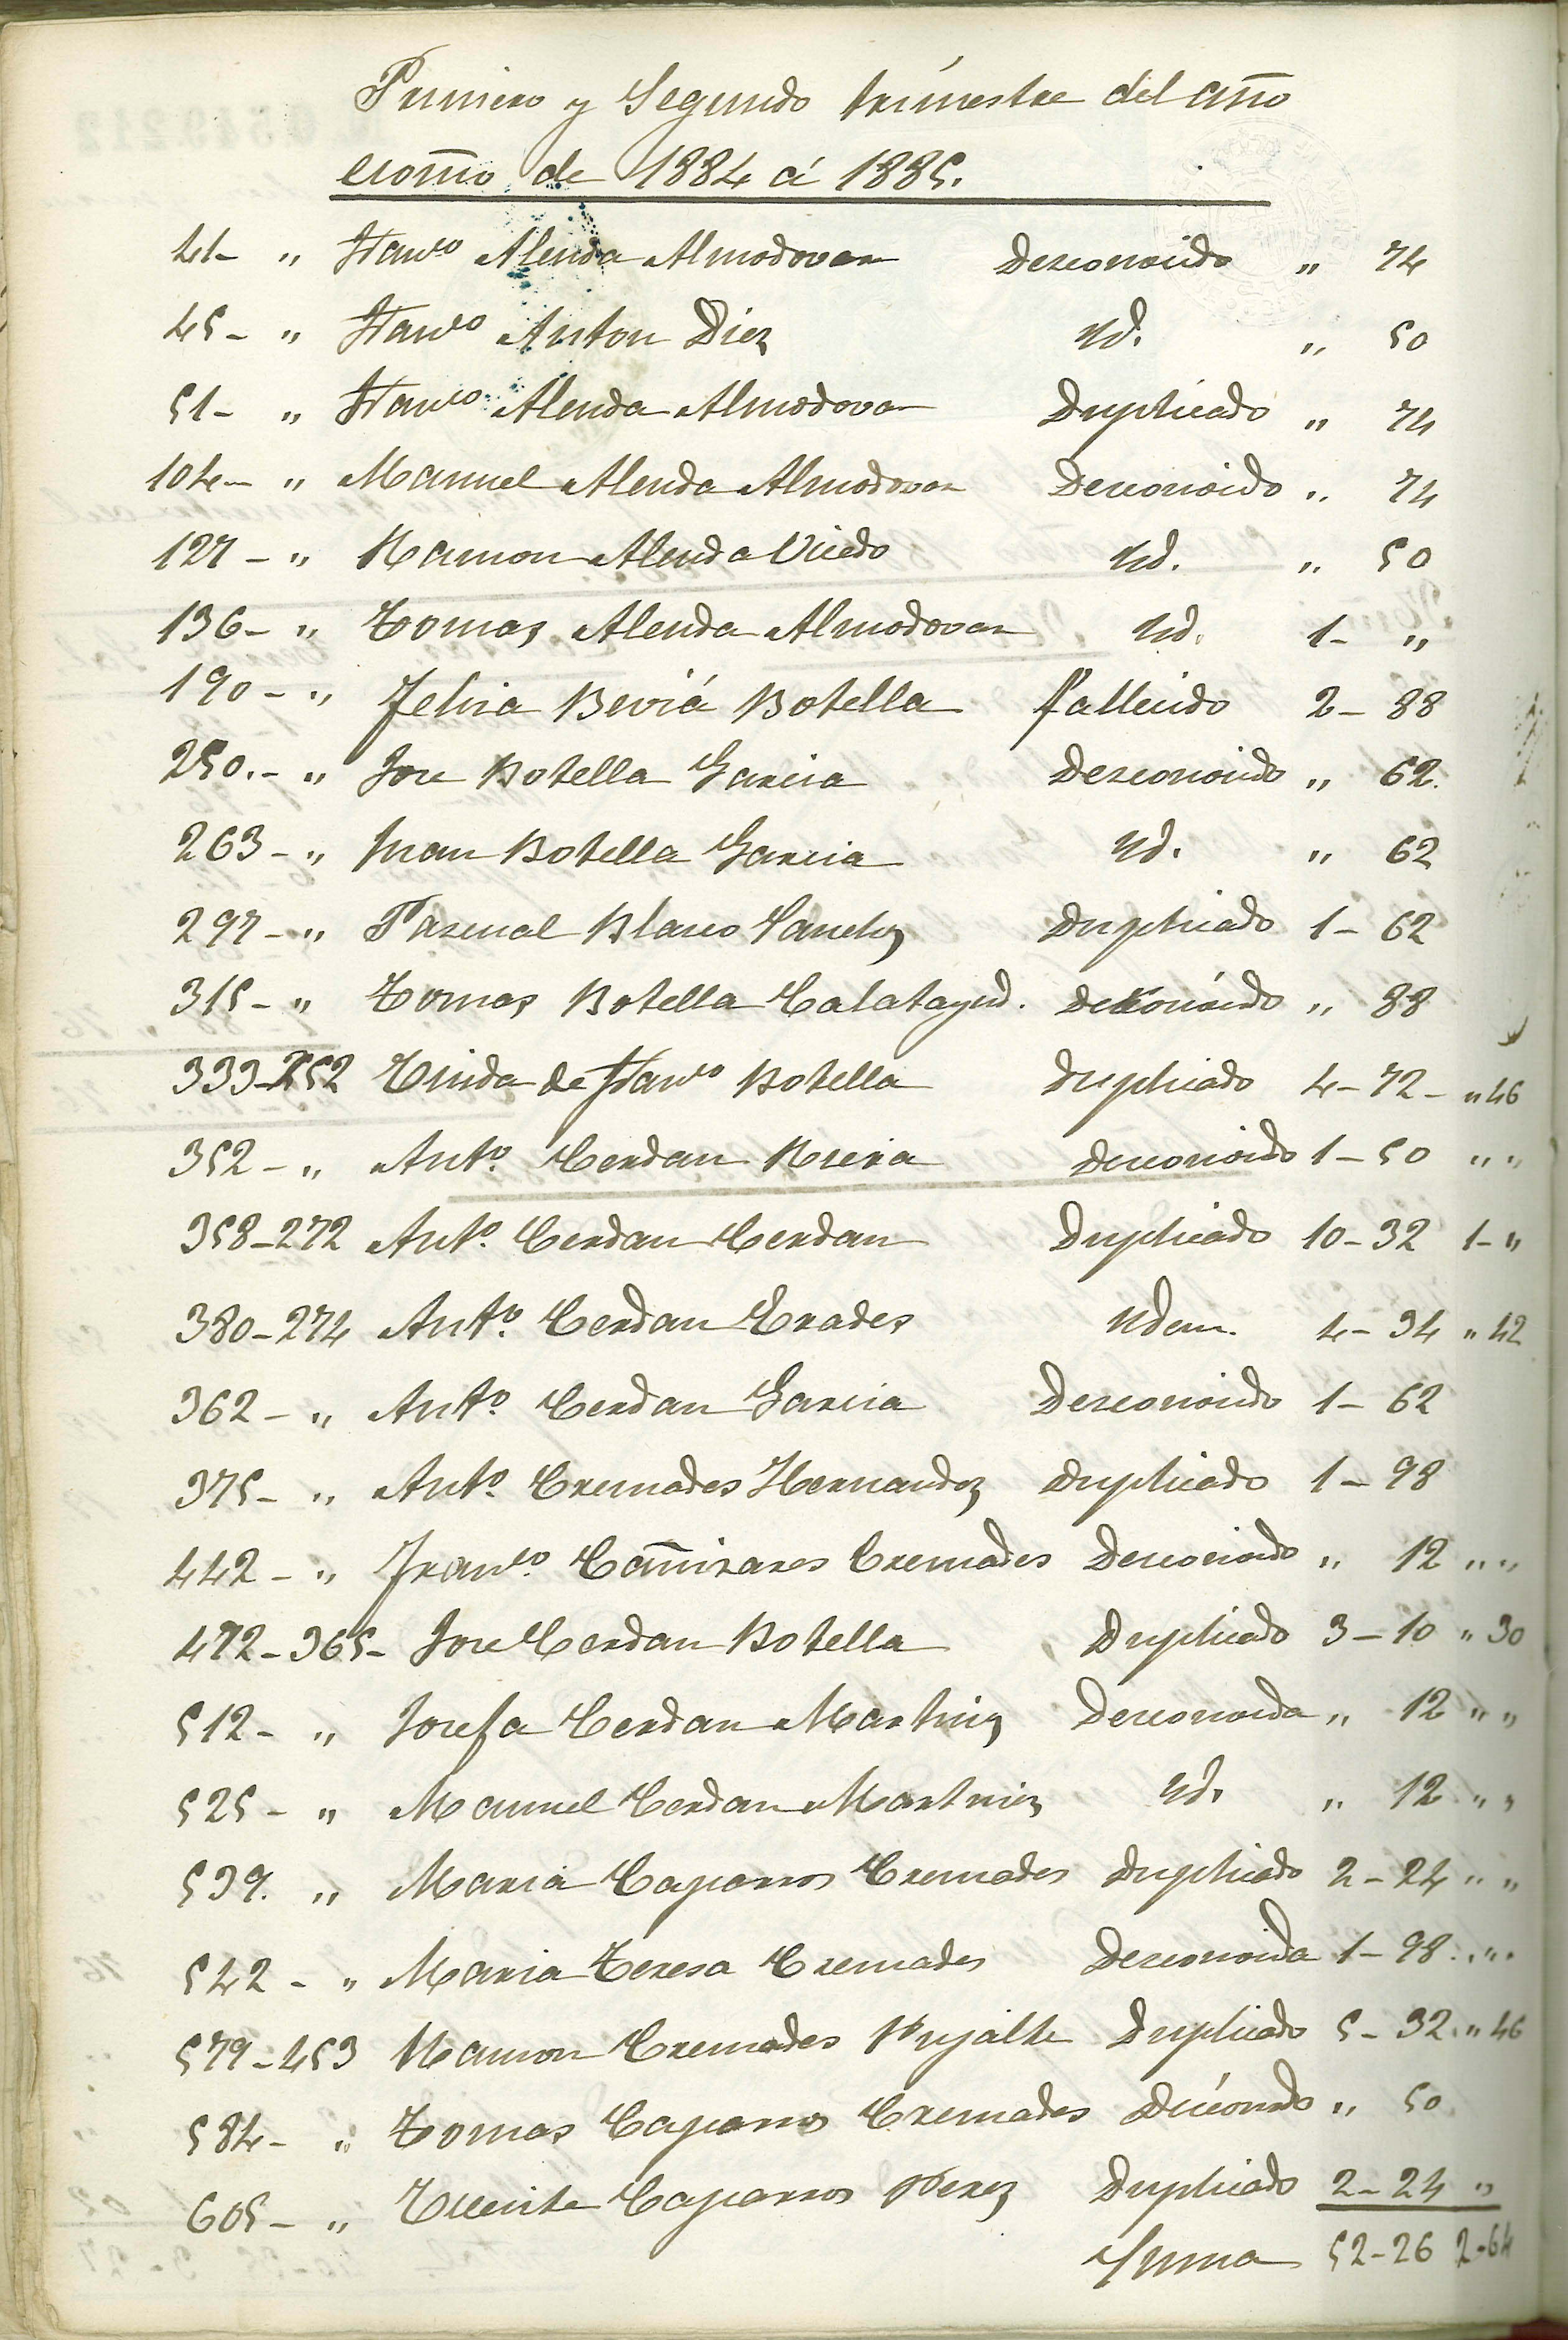 Primero y Segundo trimestre del año
econmo de 1884 á 1885.
41- " Franco Alenda Almodovar Desconocido " 74
45- " Franco Anton Diez Yd. " 50
51- " Franco Alenda Almodovar Duplicado " 74
104- " Manuel Alenda Almodovar Desconocido " 74
127- " Ramon Alenda Oviedo Yd. " 50
136- " Tomas Alenda Almodovar Yd. 1- "
190- " Felicia Beviá Botella fallecido 2-88
250.- " Jose Botella Garcia Desconocido " 62
263- " Juan Botella Garcia Yd. " 62
297- " Pascual Blasco Sanchez Duplicado 1-62
315- " Tomas Botella Calatayud. Desconocido " 88
333-252 Viuda de Franco Botella Duplicado 4-72- " 46
352- " Anto. Cerdan Riera Desconocido 1-50 " "
358-272 Anto. Cerdan Cerdan Duplicado 10-32 1- "
380-274 Anto. Cerdan Erades Ydem. 4-34 " 42
362- " Anto. Cerdan Garcia Desconocido 1-62
375- " Anto. Cremades Hernandez Duplicado 1-98
442- " Franco. Cañizares Cremades Desconocido " 12 " "
472-365- Jose Cerdan Botella Duplicado 3-10 " 30
512- " Josefa Cerdan Martinez Desconocida " 12 " "
525- " Manuel Cerdan Martinez Yd. " 12 " "
539. " Maria Caparros Cremades Duplicado 2-24 " "
542- " Maria Teresa Cremades Desconocida 1-98 " "
579-453 Ramon Cremades Pujalte Duplicado 5-32 " 46
584- " Tomas Caparros Cremades Desconocido " 50
605- " Vicente Caparros Perez Duplicado 2-24 "
Suma 52-26 2-64